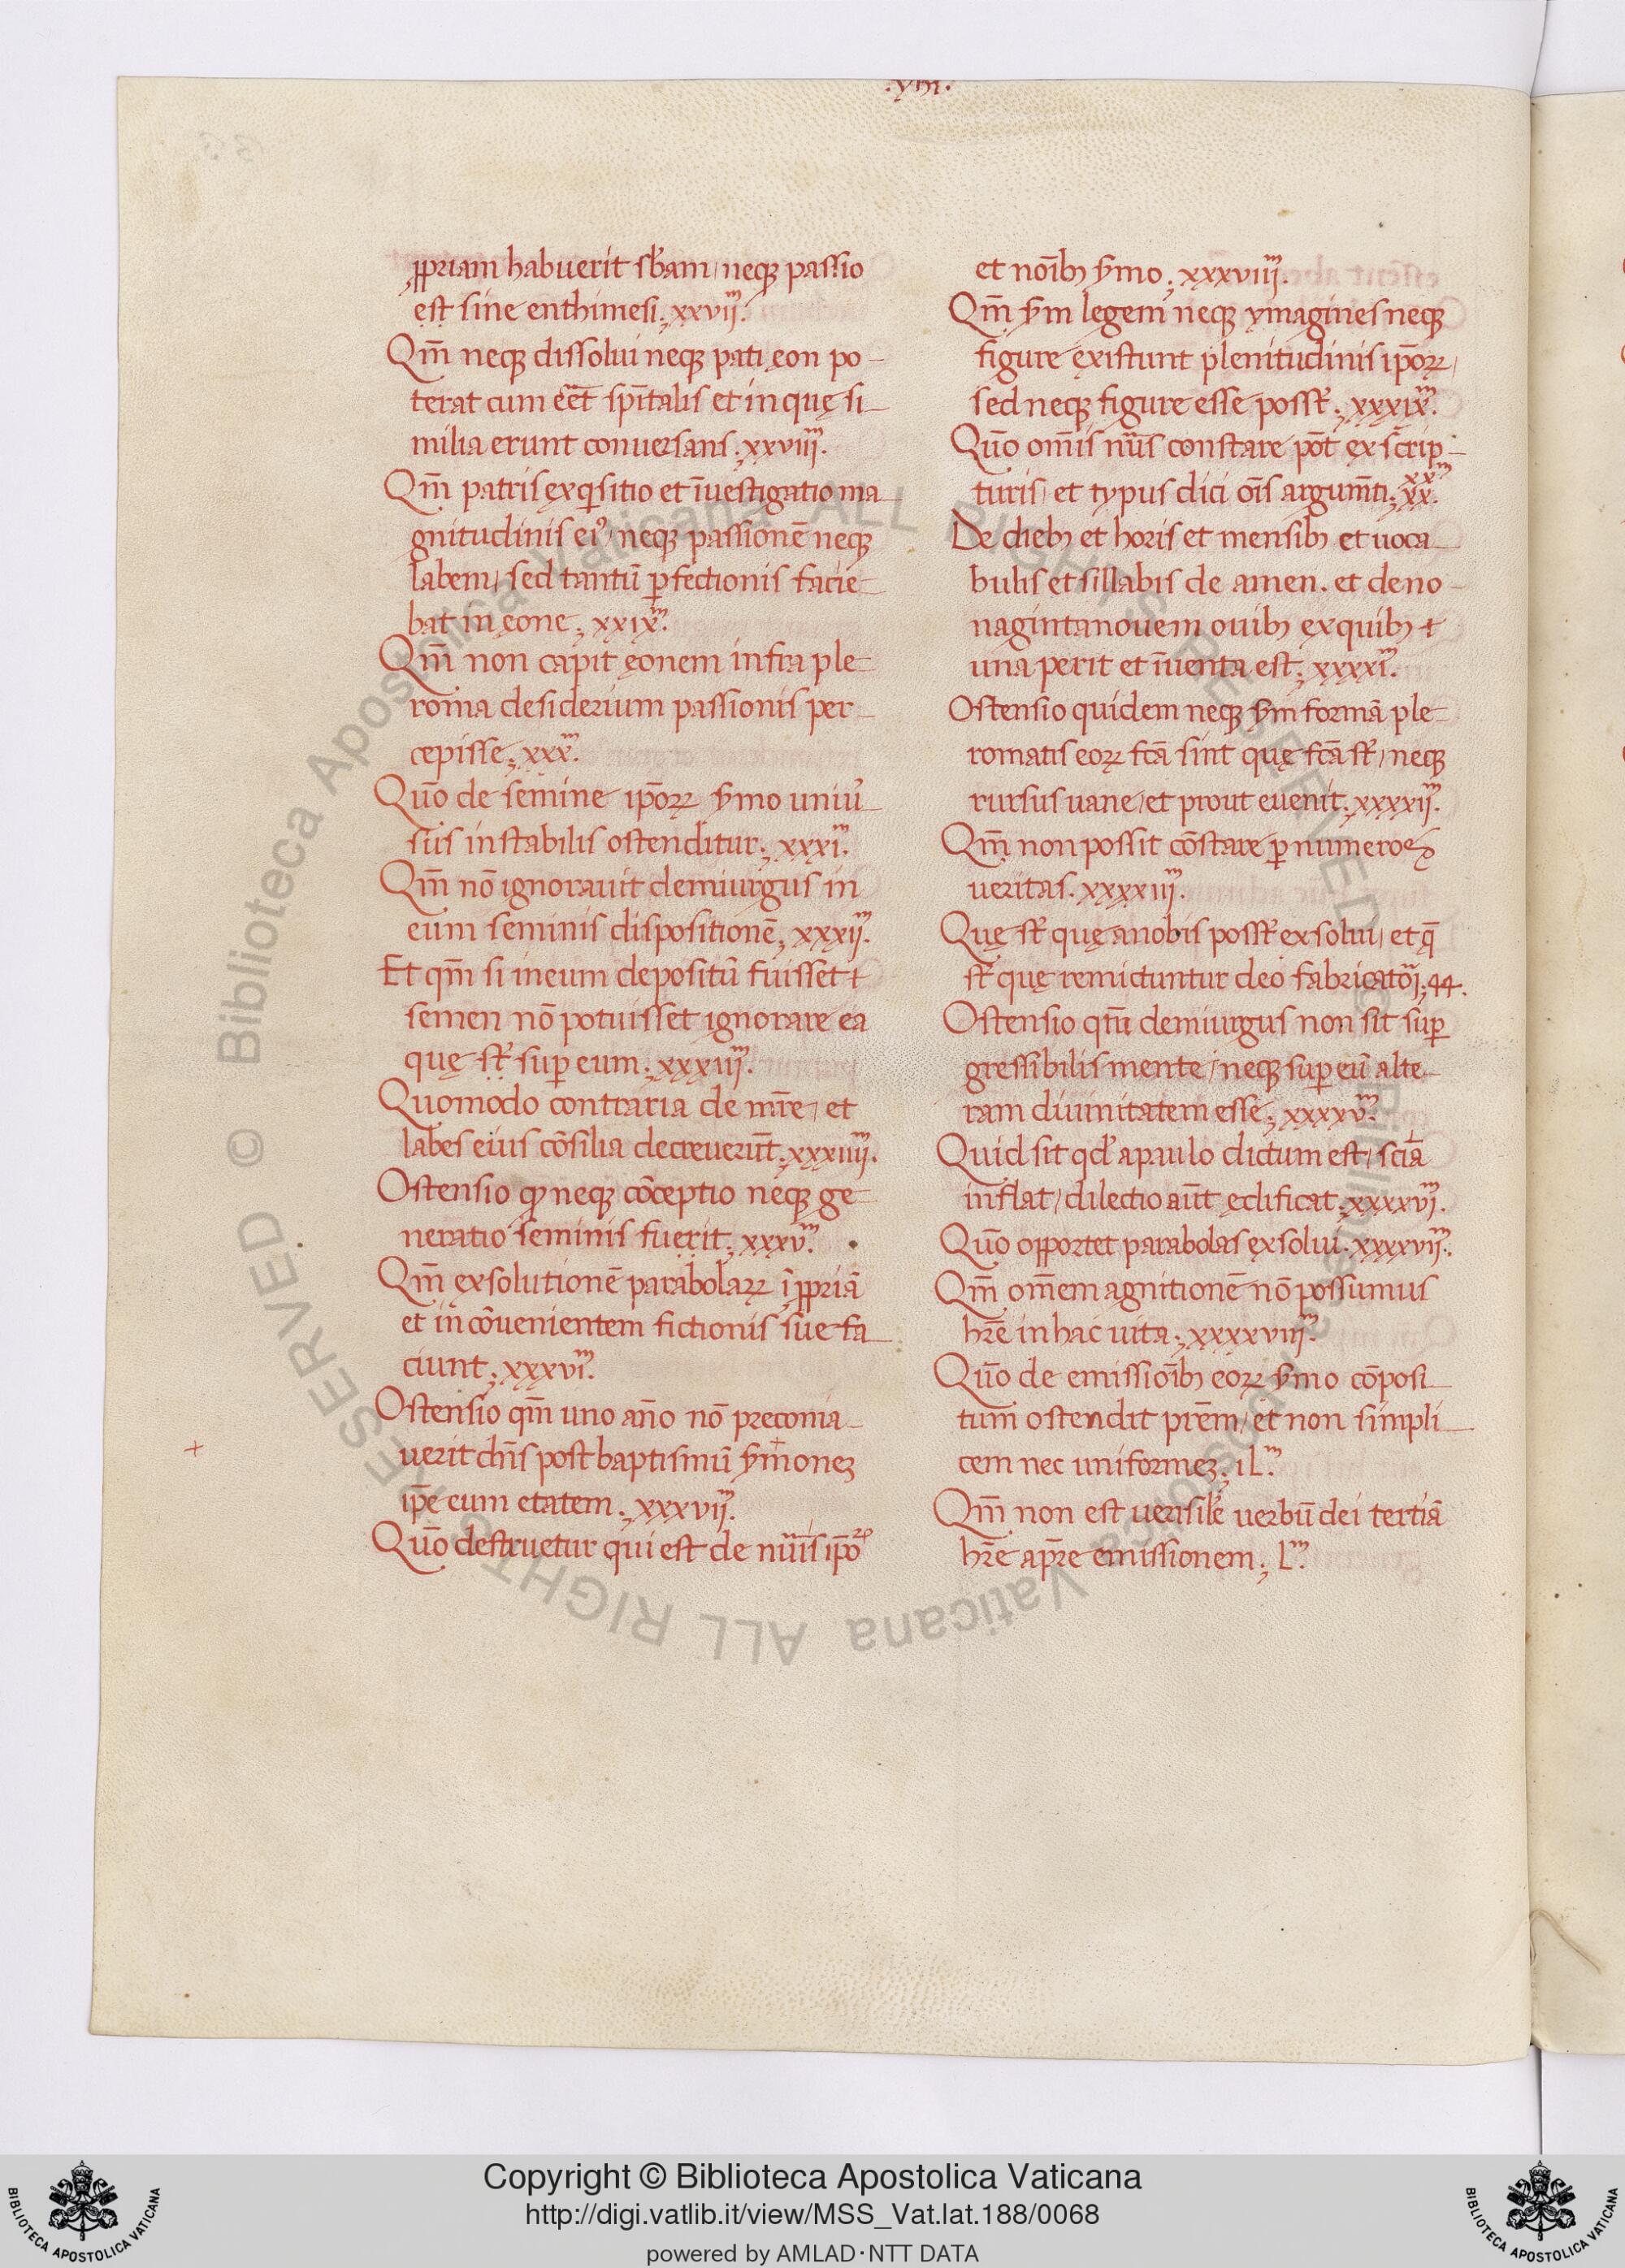 .viii.
ꝓpriam habuerit sb̄am, neqꝫ passio
est sine enthimesi; xxvijᵐ.
Qm̄ neqꝫ dissolui neqꝫ pati ęon po-
terat cum eēt sp̄italis et in quę si-
milia erunt conuersans; xxviiijᵐ.
Qm̄ patris exqͥsitio et īuestigatio ma-
gnitudinis eiꝰ, neqꝫ passionē neqꝫ
labem, sed tantū ꝑfectionis facie-
bat in ęone; xxixᵐ.
Qm̄ non capit ęonem infra ple-
roma desiderium passionis per-
cepisse; xxxᵐ.
Quō de semine ip̄oꝝ ẜmo uniū-
sus instabilis ostenditur; xxxiᵐ.
Qm̄ nō ignorauit demiurgus in
eum seminis dispositionē; xxxijᵐ.
Et qm̄ si in eum depositū fuisset
semen nō potuisset ignorare ea
quę st̄ suꝑ eum; xxxiijᵐ.
Quomodo contraria de mr̄e, et
labes eius cōsilia decreuerūt; xxxiiijᵐ.
Ostensio ꝙ neqꝫ cōceptio neqꝫ ge-
neratio seminis fuerit; xxxvᵐ.
Qm̄ exsolutionē parabolaꝝ īꝓpriā
et incōuenientem fictionis sue fa-
ciunt; xxxviᵐ.
Ostensio qm̄ uno año nō preconia-
uerit chr̄s post baptismū ẜmonez
ip̄e cum etatem; xxxvijᵐ.
Quō destruetur qui est de nūis ip̄oꝝ
et noībꝫ ẜmo; xxxviiijᵐ.
Qm̄ ẜm legem neqꝫ ymagines neqꝫ
figure existunt plenitudinis ip̄oꝝ,
sed neqꝫ figure esse posst̄; xxxixᵐ.
Quō om̄is nūs constare pōt ex scrip-
turis, et typus dici ois argum̄ti; xxxxᵐ.
De diebꝫ et horis et mensibꝫ et uoca-
bulis et sillabis de amen. et de no-
naginta nouem ouibꝫ ex quibꝫ
una perit et īuenta est; xxxxiᵐ.
Ostensio quidem neqꝫ ẜm formā ple-
romatis eoꝝ fcā sint quę fcā st̄, neqꝫ
rursus uane, et prout euenit; xxxxijᵐ.
Qm̄ non possit cōstare ꝑ numeros
ueritas. xxxxiijᵐ.
Quę st̄ quę a nobis posst̄ exsolui, et q̄
st̄ quę remictuntur deo fabricatōi; 44.
Ostensio qm̄ demiurgus non sit suꝑ
gressibilis mente, neqꝫ suꝑ eū alte-
ram diuinitatem esse; xxxxvᵐ.
Quid sit qd̓ a paulo dictum est, sciā
inflat, dilectio aūt edificat; xxxxvjᵐ.
Quō oꝓportet parabolas exsolui; xxxxvijᵐ.
Qm̄ om̄em agnitionē nō possumus
hr̄e in hac uita; xxxxviiijᵐ.
Quō de emissioībꝫ eoꝝ ẜmo cōposi-
tum ostendit prēm, et non simpli-
cem nec uniformez; iLᵐ.
Qm̄ non est uerisile uerbū dei tertiā
hr̄e a pr̄e emissionem; Lᵐ.
© Biblioteca Apostolica Vaticana ALL RIGHTS RESERVED
Copyright © Biblioteca Apostolica Vaticana
http://digi.vatlib.it/view/MSS_Vat.lat.188/0068
powered by AMLAD·NTT DATA
BIBLIOTECA APOSTOLICA VATICANA
BIBLIOTECA APOSTOLICA VATICANA